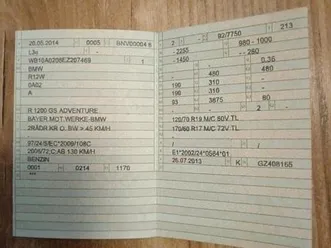 20.05.2014 0005 BNV00004 8
L3e -
WB10A0208EZ207469 1
BMW
R12W
0A02
A
R 1200 GS ADVENTURE
BAYER.MOT.WERKE-BMW
2RÄDR.KR.O.BW > 45 KM/H
97/24*8/EC*2009/108C
2006/72;C;AB 130 KM/H
BENZIN
0001 0214 1170
***
2 - 92/7750 213
-2255 - 980 - 1000
-1450 - -260
- 0.36
- 480
190 480
310 -
190 -
310 -
93 3875 80
- 2 -
120/70 R19 M/C 60V TL
170/60 R17 M/C 72V TL
E1*2002/24*0584*01
26.07.2013 K GZ408165